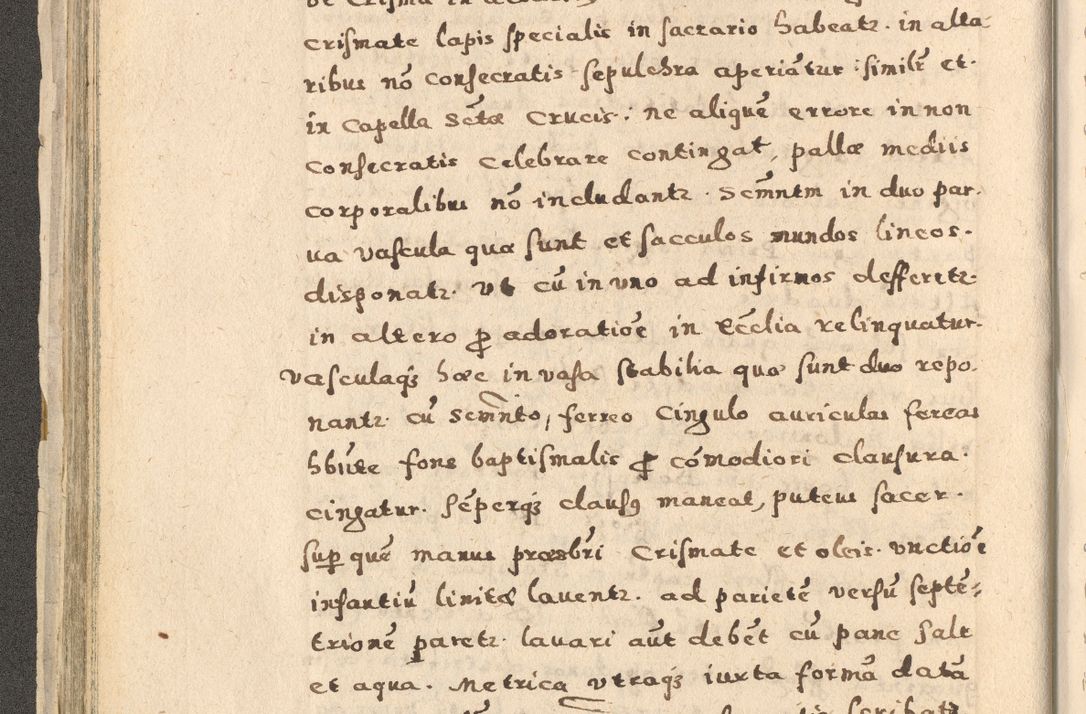 de Crisma in
crismate lapis specialis in sacrario habeatz. in alta
ribus nō consecratis sepulchra aperiātur: similr̄ et.
in Capella Sc̄tæ Crucis: ne aliquē errore in non
consecratis celebrare contingat, pallæ mediis
corporalibus nō includantz. Scm̄ntm in duo par.
ua vascula quæ sunt et sacculos mundos lineos.
disponatz. Ut cū in uno ad infirmos defferetz.
in altero ꝑ adoratiōe in Ecc̄lia relinquatur.
vasculaqꝫ hæc in vasa stabilia quæ sunt duo repo.
nantz. cū Scmn̄to, ferreo Cingulo auriculas fereas
hbūte fons baptismalis ꝑ cōmodiori clausura.
cingatur. sēperqꝫ claus9 maneat, puteus sacer.
suꝑ quē manus præsbr̄i Crismate et oleis. unctiōe
infantiū linitæ laventz. ad parietē versū septē=
trionē paretz. lavari aūt debēt cū pane sale
et aqua. Metrica utraqꝫ iuxta formā datā
scribatz